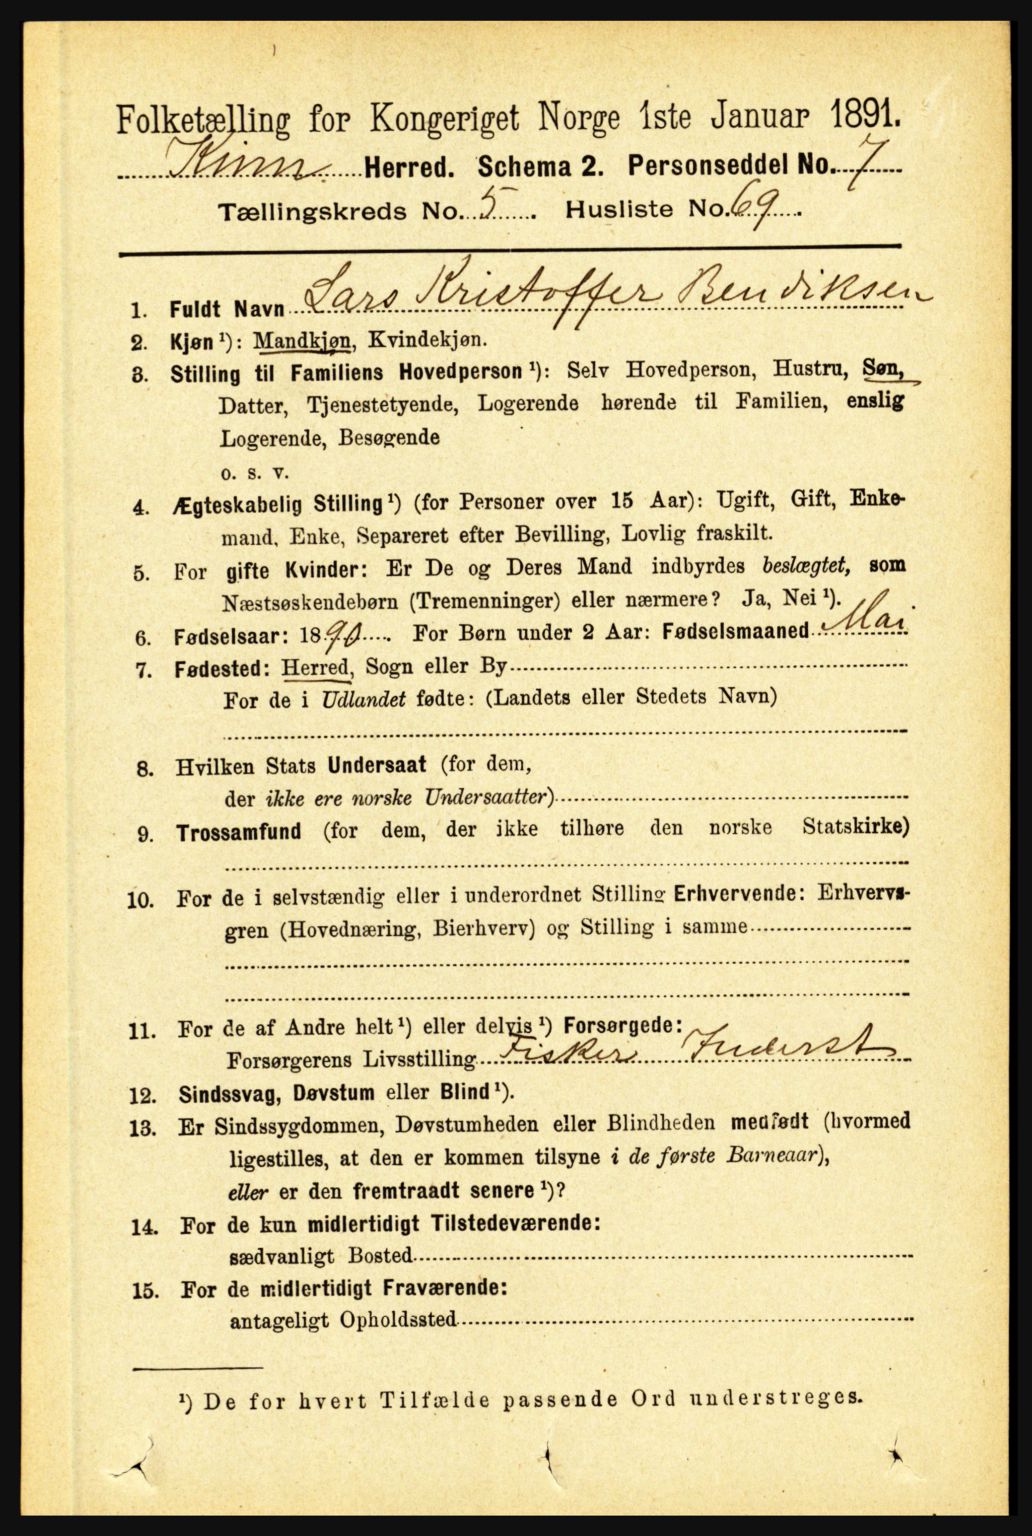 Folketælling for Kongeriget Norge 1ste Januar 1891.
Kinn Herred. Schema 2. Personseddel No. 7
Tællingskreds No. 5. Husliste No. 69.
1. Fuldt Navn Lars Kristoffer Bendiksen
2. Kjøn ¹): Mandkjøn, Kvindekjøn.
3. Stilling til Familiens Hovedperson ¹): Selv Hovedperson, Hustru, Søn,
Datter, Tjenestetyende, Logerende hørende til Familien, enslig
Logerende, Besøgende
o. s. v.
4. Ægteskabelig Stilling ¹) (for Personer over 15 Aar): Ugift, Gift, Enke-
mand, Enke, Separeret efter Bevilling, Lovlig fraskilt.
5. For gifte Kvinder: Er De og Deres Mand indbyrdes beslægtet, som
Næstsøskendebørn (Tremenninger) eller nærmere? Ja, Nei ¹).
6. Fødselsaar: 1890. For Børn under 2 Aar: Fødselsmaaned Mai
7. Fødested: Herred, Sogn eller By
For de i Udlandet fødte: (Landets eller Stedets Navn)
8. Hvilken Stats Undersaat (for dem,
der ikke ere norske Undersaatter)
9. Trossamfund (for dem, der ikke tilhøre den norske Statskirke)
10. For de i selvstændig eller i underordnet Stilling Erhvervende: Erhvervs-
gren (Hovednæring, Bierhverv) og Stilling i samme
11. For de af Andre helt ¹) eller delvis ¹) Forsørgede:
Forsørgerens Livsstilling Fisker Inderst
12. Sindssvag, Døvstum eller Blind ¹).
13. Er Sindssygdommen, Døvstumheden eller Blindheden medfødt (hvormed
ligestilles, at den er kommen tilsyne i de første Barneaar),
eller er den fremtraadt senere ¹)?
14. For de kun midlertidigt Tilstedeværende:
sædvanligt Bosted
15. For de midlertidigt Fraværende:
antageligt Opholdssted
¹) De for hvert Tilfælde passende Ord understreges.